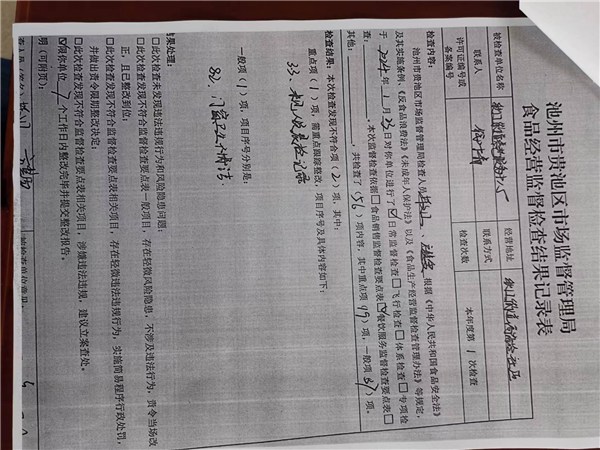 池州市贵池区市场监督管理局
食品经营监督检查结果记录表
被检查单位名称
经营地址
联系人
联系方式
许可证编号或
备案编号
检查次数
本年度第 1 次检查
检查内容:
池州市贵池区市场监督管理局检查人员 、 根据《中华人民共和国食品安全法》
及其实施条例、《反食品浪费法》《未成年人保护法》以及《食品生产经营监督检查管理办法》等规定,
于 2024年 1 月 23 日对你单位进行了☑日常监督检查□飞行检查□体系检查□专项检
查: 。本次监督检查依据□食品销售监督检查要点表☑餐饮服务监督检查要点表□
其他: ,共检查了(56)项内容,其中重点项(19)项,一般项(37)项。
检查结果:本次检查发现不符合项(2)项,其中:
重点项(1)项,需重点跟踪整改,项目序号及具体内容如下:
33.
一般项(1)项,项目序号分别是:
82.门窗卫生不清洁.
结果处理:
□此次检查未发现违法违规行为和风险隐患问题:
□此次检查发现不符合监督检查要点表一般项目,存在轻微风险隐患,不涉及违法行为,责令当场改
正,且已整改到位:
□此次检查发现不符合监督检查要点表相关项目,存在轻微违法违规行为,实施简易程序行政处罚,
并做出责令限期整改决定:
□此次检查发现不符合监督检查要点表相关项目,涉嫌违法违规,建议立案查处。
☑限你单位 7 个工作日内整改完毕并提交整改报告。
明(可附页):